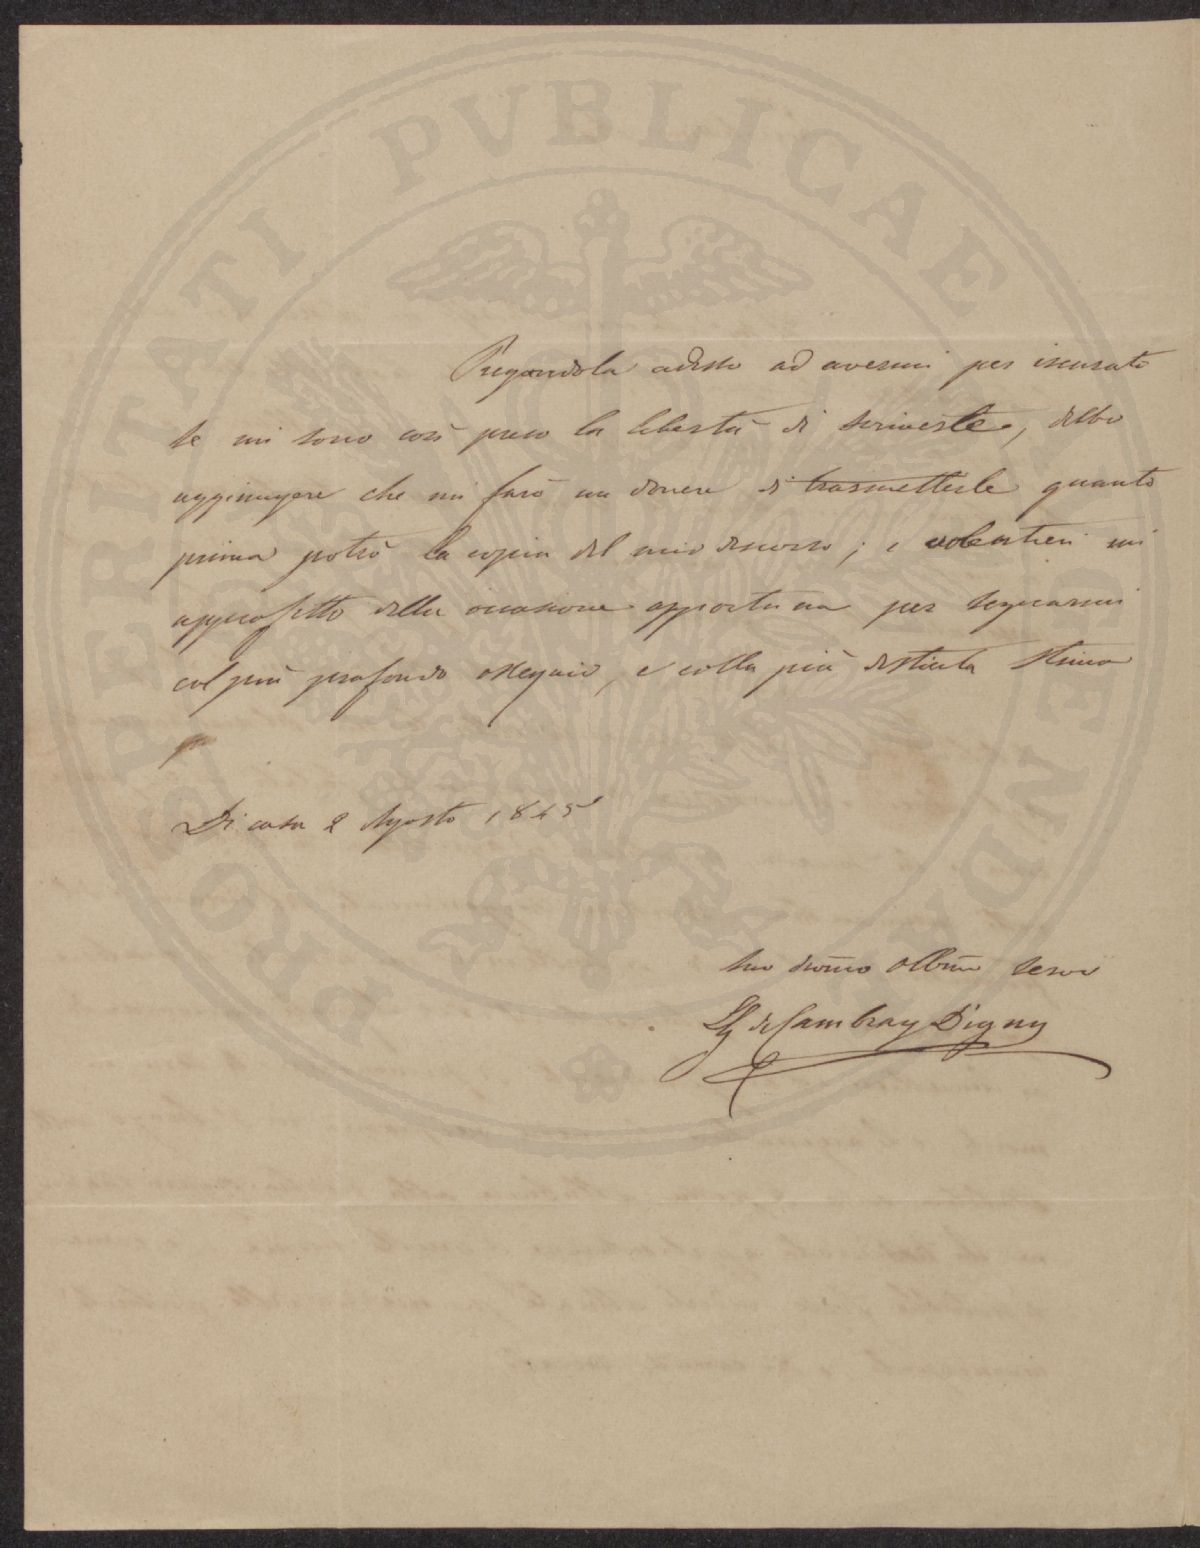 PROSPERITATI PVBLICAE AVGENDAE
Pregandola adesso ad avermi per iscusato
se mi sono così preso la libertà di scriverle, debbo
aggiungere che mi farò un dovere di trasmetterle quanto
prima potrò la copia del mio discorso; e volentieri mi
approfitto della occasione opportuna per segnarmi
col più profondo ossequio, e colla più distinta stima
Di casa 2 Agosto 1845
Suo devmo obbmo serve
LG de Cambray Digny